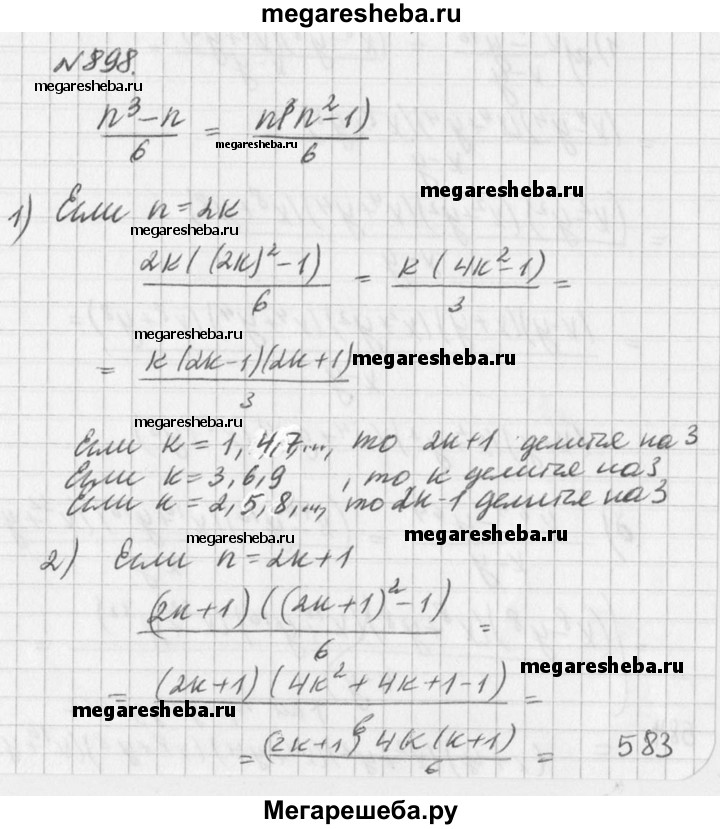 megaresheba.ru
№898.
megaresheba.ru
n³-n/6 = n(n²-1)/6
megaresheba.ru
megaresheba.ru
1) Если n=2k
megaresheba.ru
2k((2k)²-1)/6 = k(4k²-1)/3 =
megaresheba.ru
= k(2k-1)(2k+1)/3
megaresheba.ru
megaresheba.ru
Если k=1,4,7,..., то 2k+1 делится на 3
Если k=3,6,9 , то k делится на 3
Если k=2,5,8,..., то 2k-1 делится на 3
megaresheba.ru
2) Если n=2k+1
(2k+1)((2k+1)²-1)/6 =
megaresheba.ru
= (2k+1)(4k²+4k+1-1)/6 =
megaresheba.ru
= (2k+1)4k(k+1)/6 =
583
Мегарешеба.ру